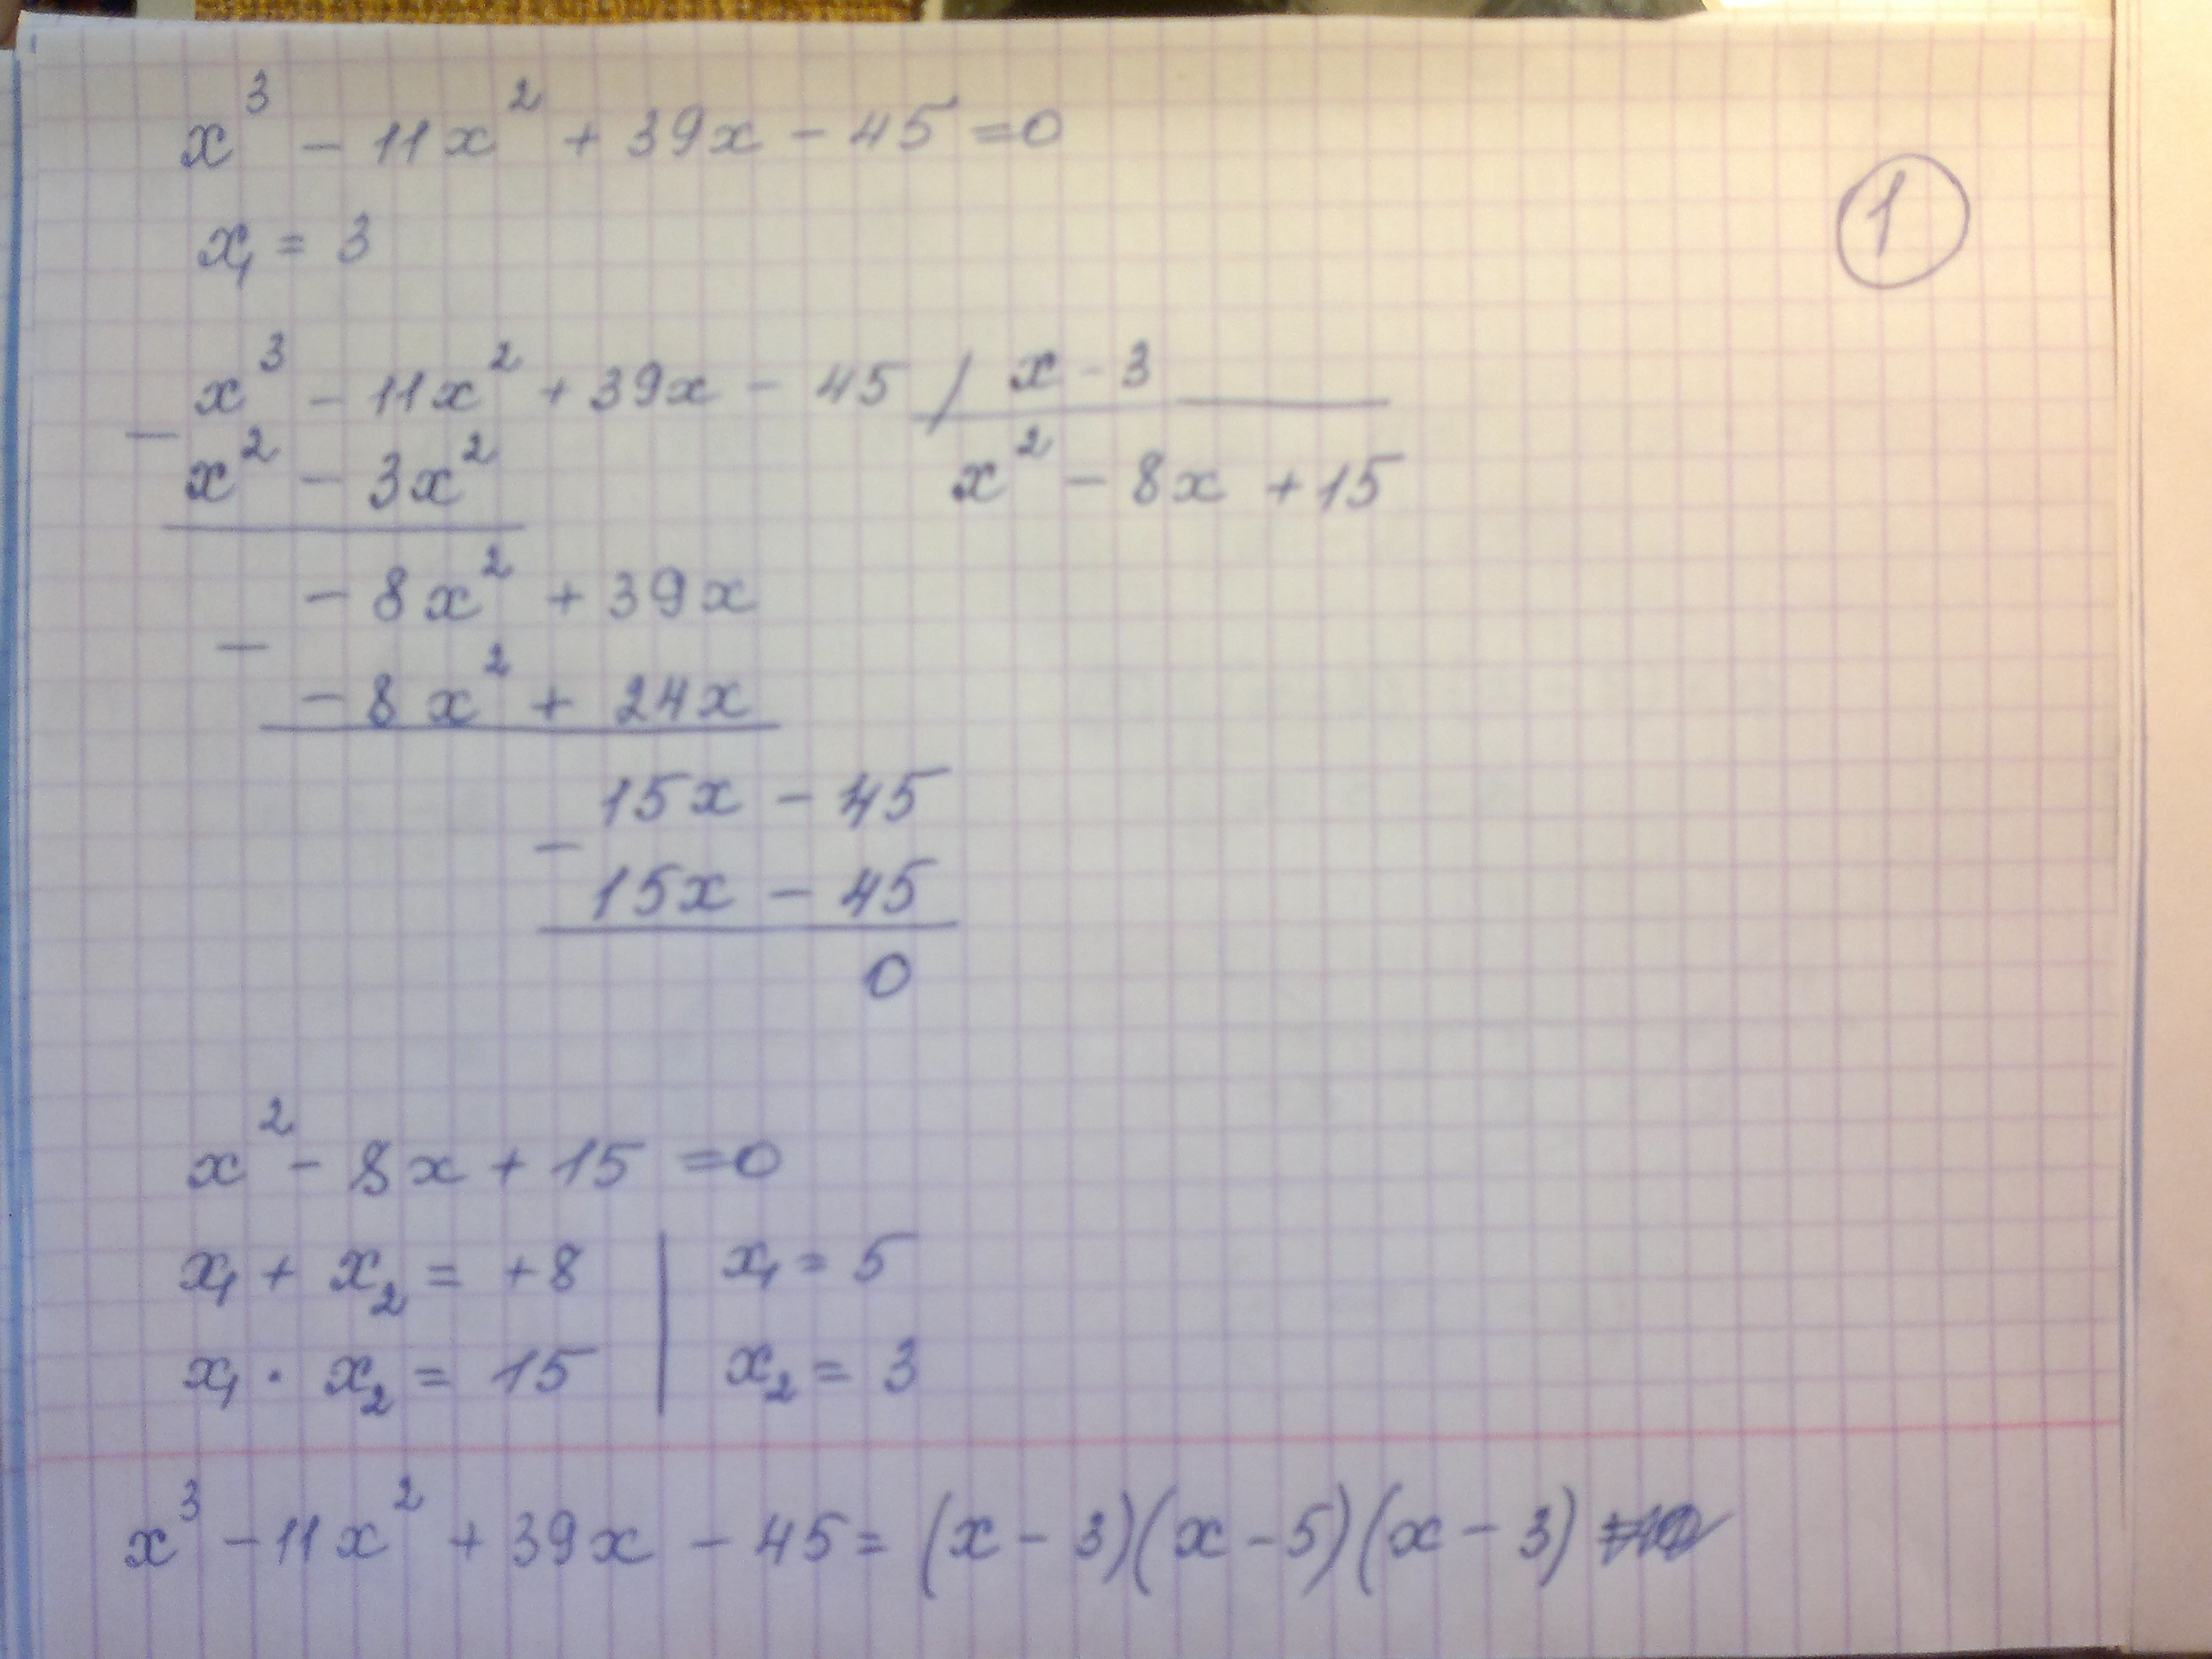 x³ - 11x² + 39x - 45 = 0
①
x₁ = 3
x³ - 11x² + 39x - 45 / x - 3
- x² - 3x² x² - 8x + 15
- 8x² + 39x
-
- 8x² + 24x
15x - 45
-
15x - 45
0
x² - 8x + 15 = 0
x₁ + x₂ = +8 | x₁ = 5
x₁ · x₂ = 15 | x₂ = 3
x³ - 11x² + 39x - 45 = (x - 3)(x - 5)(x - 3)